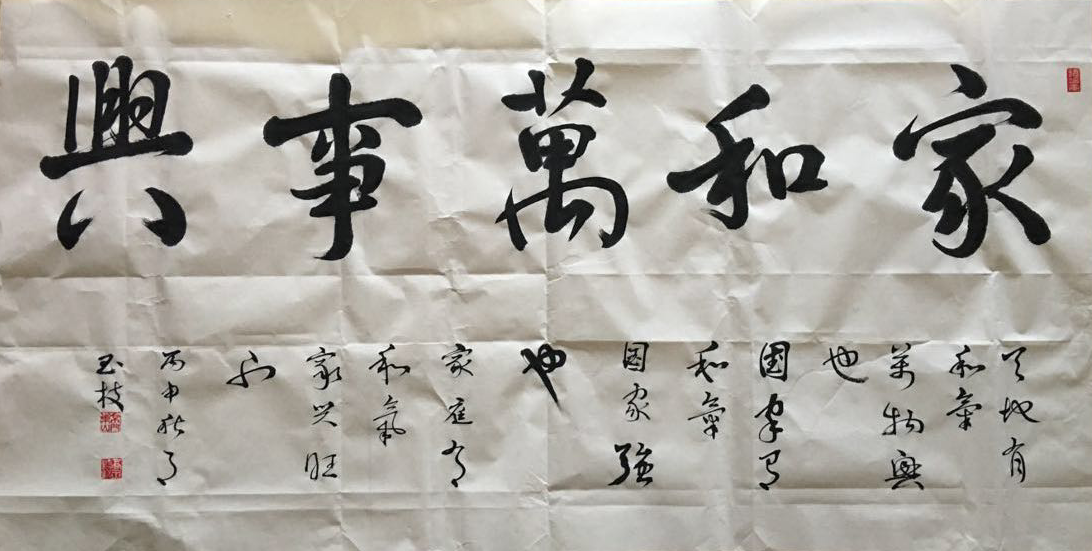 家和萬事興
天地有
和氣
萬物興
也
國家有
和氣
國家強
也
家庭有
和氣
家興旺
丙申秋月
玉枝